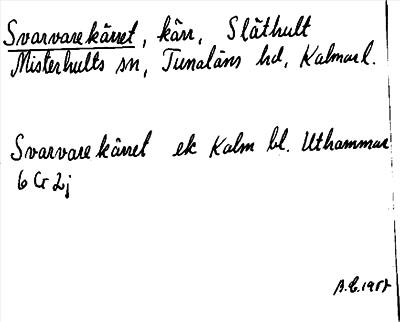 Svarvarekärret, kärr, Släthult
Misterhults sn, Tunaläns hd, Kalmar l.
Svarvarekärret ek Kalm bl. Uthammar
6 G 2j